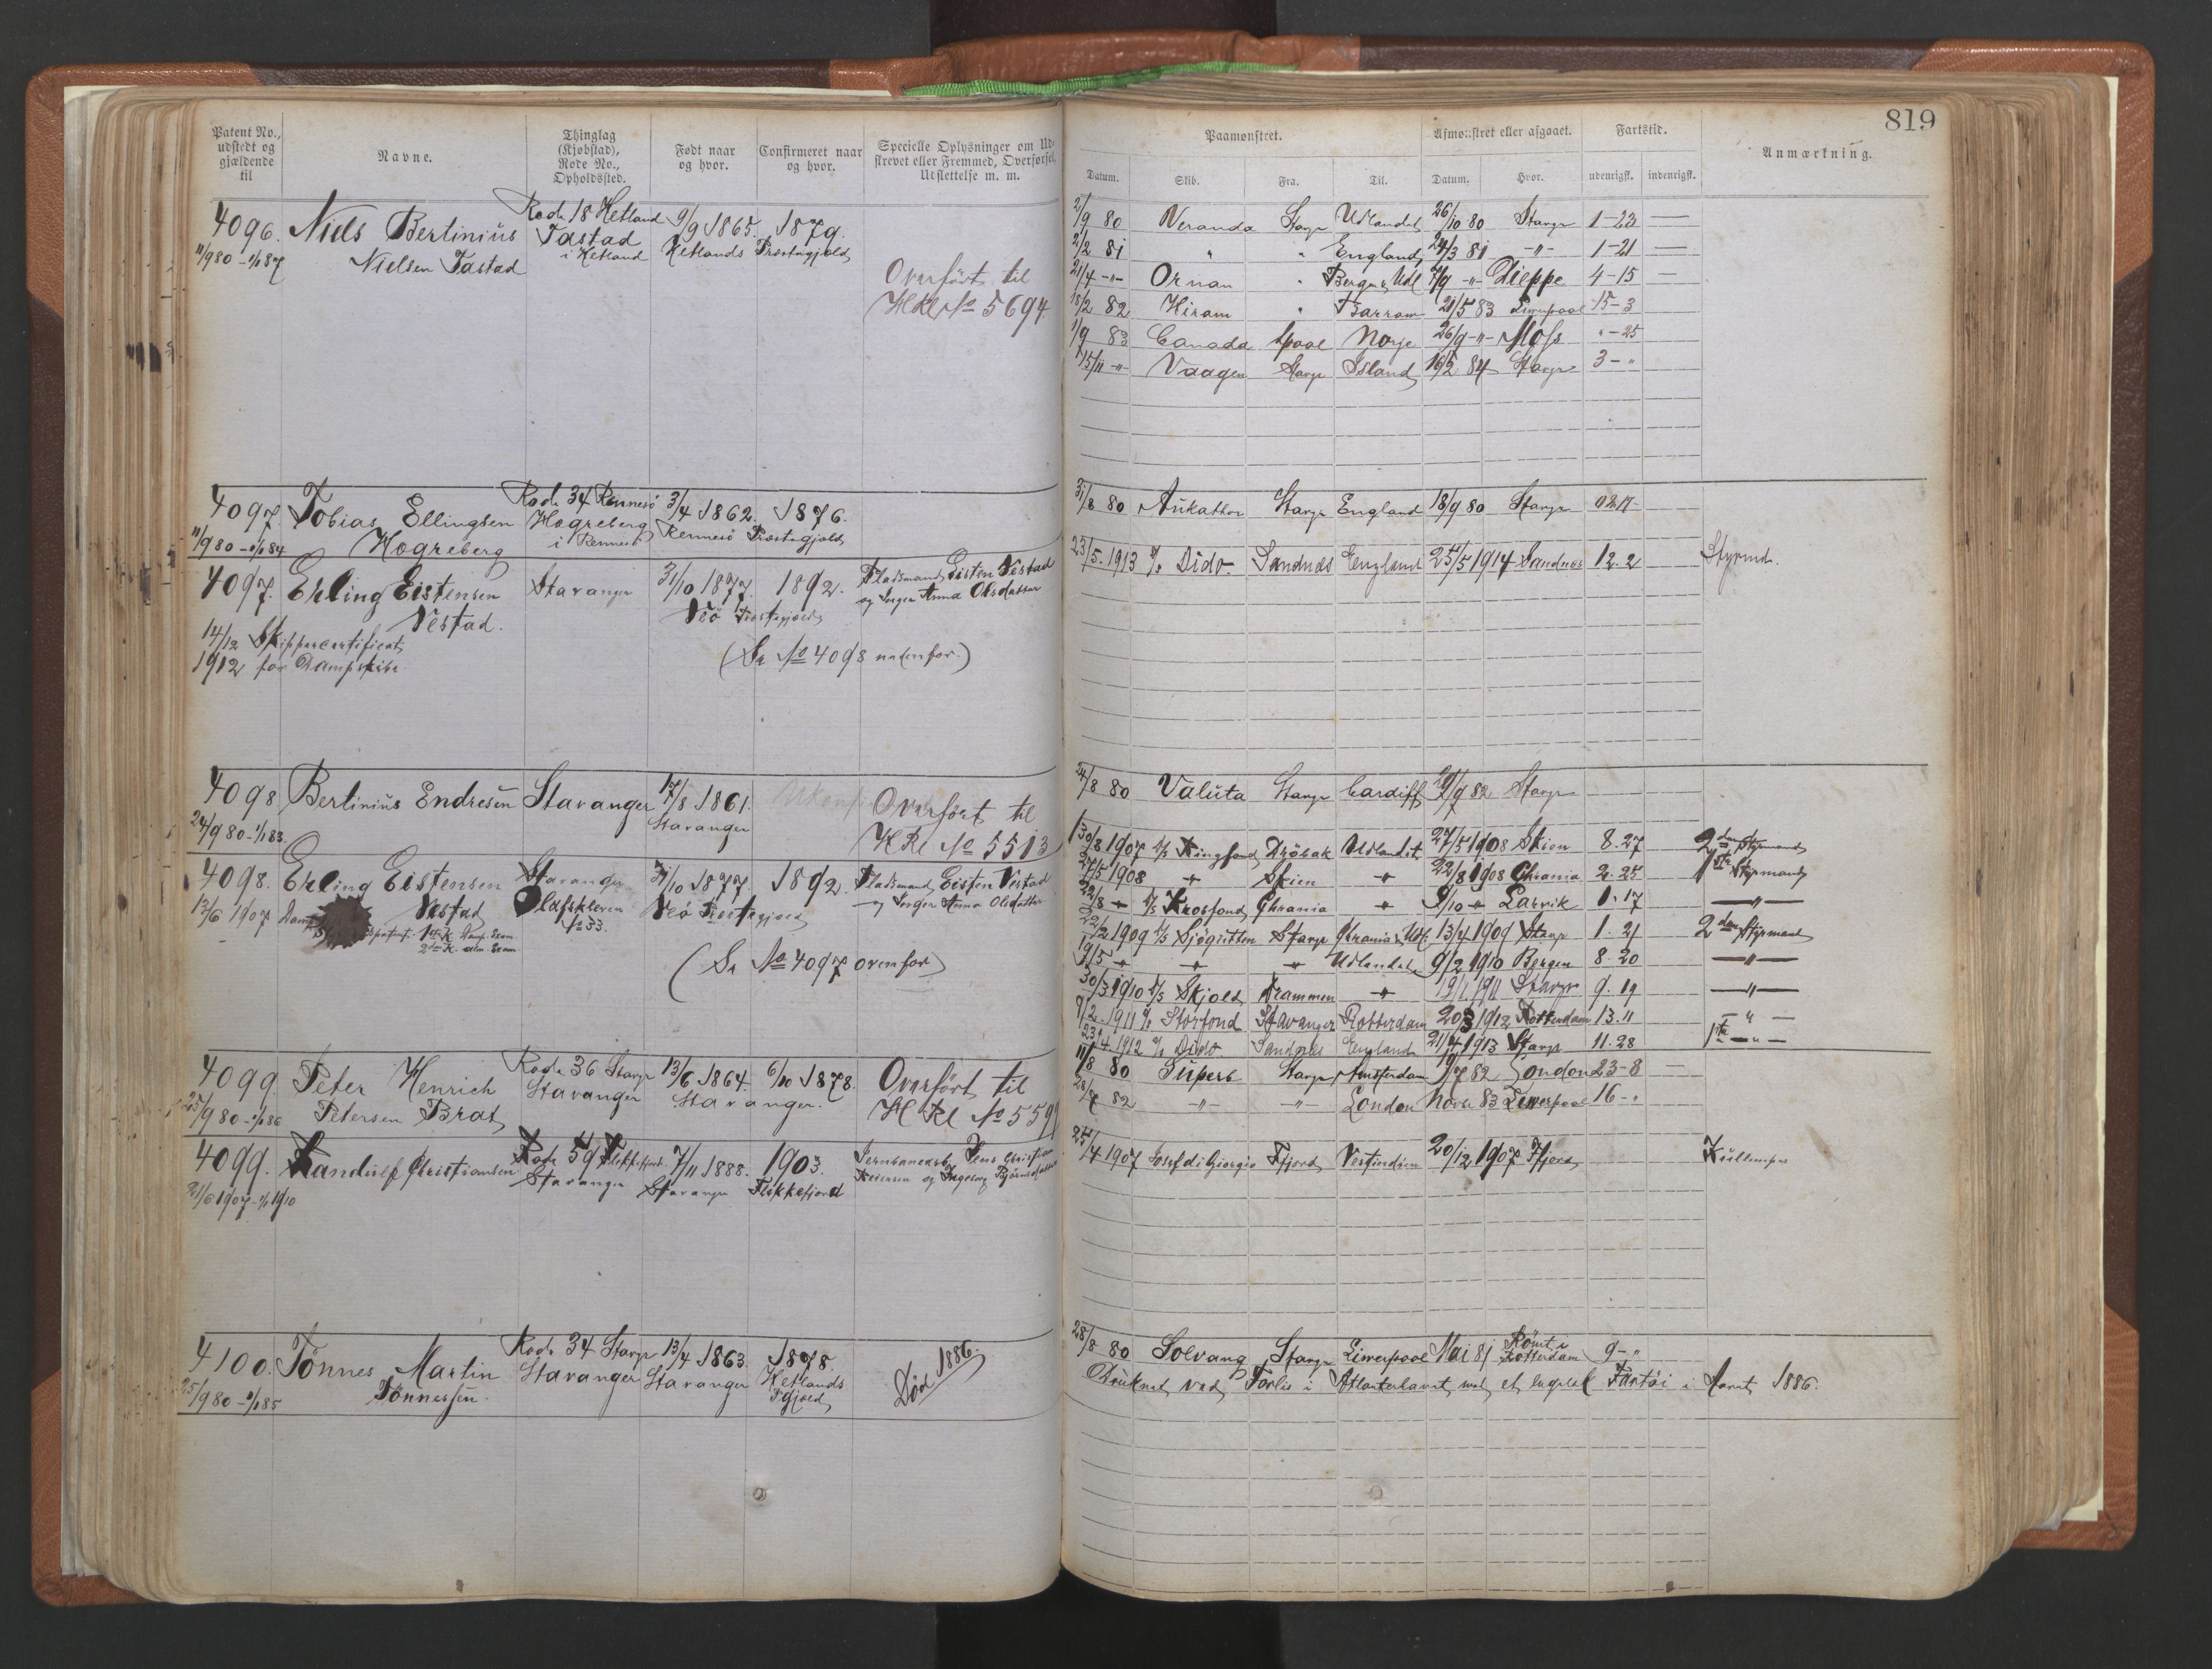 819
Patent No., udstedt og gjældende til
Navne.
Thinglag (Kjøbstad), Rode No., Opholdssted.
Født naar og hvor.
Confirmeret naar og hvor.
Specielle Oplysninger om Udskrevet eller Fremmed, Overførsel, Udslettelse m. m.
Paamønstret.
Afmønstret eller afgaaet.
Fartstid.
Anmærkning.
Datum. Skib. Fra. Til. Datum. Hvor. udenrigsk. indenrigsk.
4096. Niels Bertinius Rode 18 Hetland 9/9 1865. 1879.
11/9 80 - 1/1 87 Nielsen Tastad Tastad i Hetland Hetlands Præstegjeld
Overført til
HRl No 5694
2/9 80 Veranda Stavgr Udlandet 26/10 80 Stavgr 1-23
2/2 81 " " England 24/3 81 -"- 1-21
21/4 -"- Ornan " Bergen & Udl /9 -"- Dieppe 4-15
18/2 82 Hiram " 21/5 83 Liverpool 15-3
1/9 83 Canada Lpool Norge 26/9 -"- Moss "-25
15/11 -"- Vaagen Stavgr Island 16/2 84 Stavgr 3-"
4097. Tobias Ellingsen Rode 34 Rennesö 3/4 1862. 1876.
11/9 80 - 1/1 84 Hogreberg Hogreberg i Rennesö Rennesö Præstegjeld
31/8 80 Stavgr England 18/9 80 Stavgr
4097. Erling Eistensen Stavanger 31/10 1877. 1892. Pladsmand Eisten Vestad
Vestad. Veö Præstegjeld og Inger Anna Olsdatter
14/12 Skippercertificat
1912 for Dampskibe.
(Se No 4098 nedenfor.)
23/5. 1913 D/s Dido Sandnes England 25/5 1914 Sandnes 12. 2 Styrmd.
4098 Bertinius Endresen Stavanger 17/8 1861.
24/9 80 - 1/1 83. Stavanger
Overført til
HRl No 5513
24/8 80 Valuta Stavgr Cardiff /9 82 Stavgr
4098. Erling Eistensen Stavanger 31/10 1877. 1892. Pladsmand Eisten Vestad
13/6 1907 Vestad Olafskleven No 33. Veö Præstegjeld og Inger Anna Olsdatter
(Se No 4097 ovenfor)
30/8 1907 D/s Ringfond Dröbak Udlandet 27/5 1908 Skien 8. 27 2den Styrmand
27/5 1908 -"- Skien -"- 22/8 1908 Chrania 2. 25 1ste Styrmand
22/8 -"- D/s Krosfond Chrania -"- 9/10 -"- Larvik 1. 17 -"-
22/2 1909 D/s Sjögutten Stavgr Chrania & Udl. 13/4 1909 Stavgr 1. 21 2den Styrmand
19/5 -"- -"- -"- Udlandet 9/2 1910 Bergen 8. 20 -"-
30/3 1910 D/s Skjold Drammen -"- 19/1 1911 Stavgr 9. 19 -"-
9/2. 1911 D/s Storfond Stavanger Rotterdam 20/3 1912 Rotterdam 13. 11 -"-
23/4 1912 D/s Dido. Sandnes England 21/4 1913 Stavgr 11. 28 1ste -"-
4099. Peter Henrich Rode 36 Stavgr 13/6 1864. 6/10 1878.
25/9 80 - 1/1 86 Petersen Brat Stavanger Stavanger.
Overført til
HRl No 559
11/8 80 Superb Stavgr Amsterdam /7 82 London 23-8
28/7 82 -"- -"- London Novbr 83 Liverpool 16-"
4099. Randulf Christiansen Rode 59 Flekkefjord 7/11 1888. 1903. Jens Christian
21/6 1907 - 1/1 1910 Stavanger Stavanger Flekkefjord og Ingeborg
25/4 1907 Josef di Giorgio Ffjord Vestindien 20/12 1907 Ffjord Kullemper
4100. Tönnes Martin Rode 34 Stavgr 13/4 1863. 1878.
25/9 80 - 1/1 85 Tönnessen. Stavanger Stavanger Hetlands Pgjeld
Död 1886.
28/8 80 Solvang Stavgr Liverpool Mai 81 Römt i Rotterdam 9-"
Druknet ved Forlis i Atlanterhavet med et engelsk Fartöi i Aaret 1886.